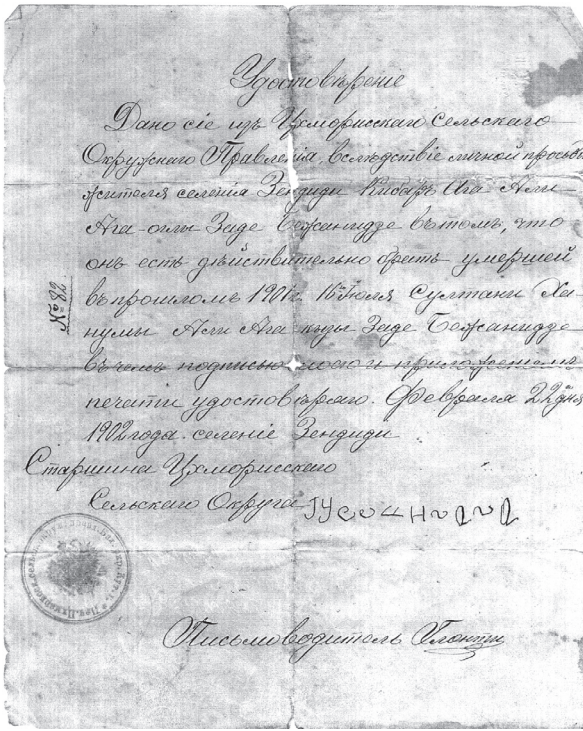 Удостовѣреніе
Дано сіе изъ Цхморисскаго Сельскаго
Окружнаго Правленія, вслѣдствіе личной просьбы
жителя селенія Зендиди Кибаръ Ага Али-
Ага-оглы Заде Бежанидзе въ томъ, что
онъ есть дѣйствительно братъ умершей
въ прошломъ 1901 г. Іюля Султани Ха-
нумы Али Ага кызы Заде Бежанидзе
въ чемъ подписью моею и приложеніемъ
печати удостовѣряю. Февраля 22 дня
1902 года. селеніе Зендиди
№ 82.
Старшина Цхморисскаго
Сельскаго Округа
Письмоводитель